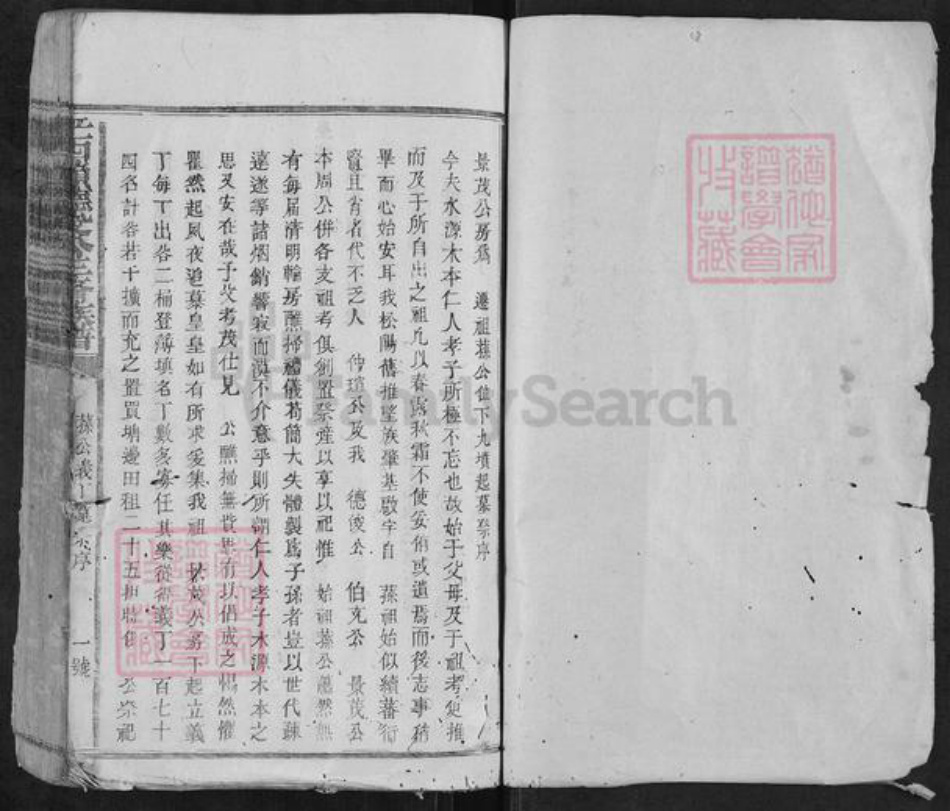 景茂公房為 遷祖蓀公位下九墳起墓祭序
今夫水源木本仁人孝子所極不忘也故始于父母及于祖考更推
而及于所自出之祖凡以春露秋霜不使妥侑或遺焉而後志事
畢而心始安耳我松陽舊推望族肇基啟宇自 蓀祖始似續蕃衍
賢且省者代不乏人 仲瑄公及我 德俊公 伯克公 景茂公
本周公併各支祖考俱創置祭產以享以祀惟 始祖蓀公墓然無
有每屆清明輪房醮掃禮儀苟簡大失體製為子孫者豈以世代疎
遠遂等諸烟銷響寂而漠不介意乎則所謂仁人孝子水源木本之
思又安在哉予父考茂仕見 公醮掃無貲思有以倡成之惕然懼
瞿然起夙夜追慕皇皇如有所求爰集我祖 茂公房下起立義
丁每丁出谷二桶登薄填名丁數多寡任其樂從得義丁一百七十
四名計谷若干擴而充之置買墈邊田租二十五 公祭祀
蓀公義 序
一號
猶他家譜學會收藏
猶他家譜學會收藏
FamilySearch